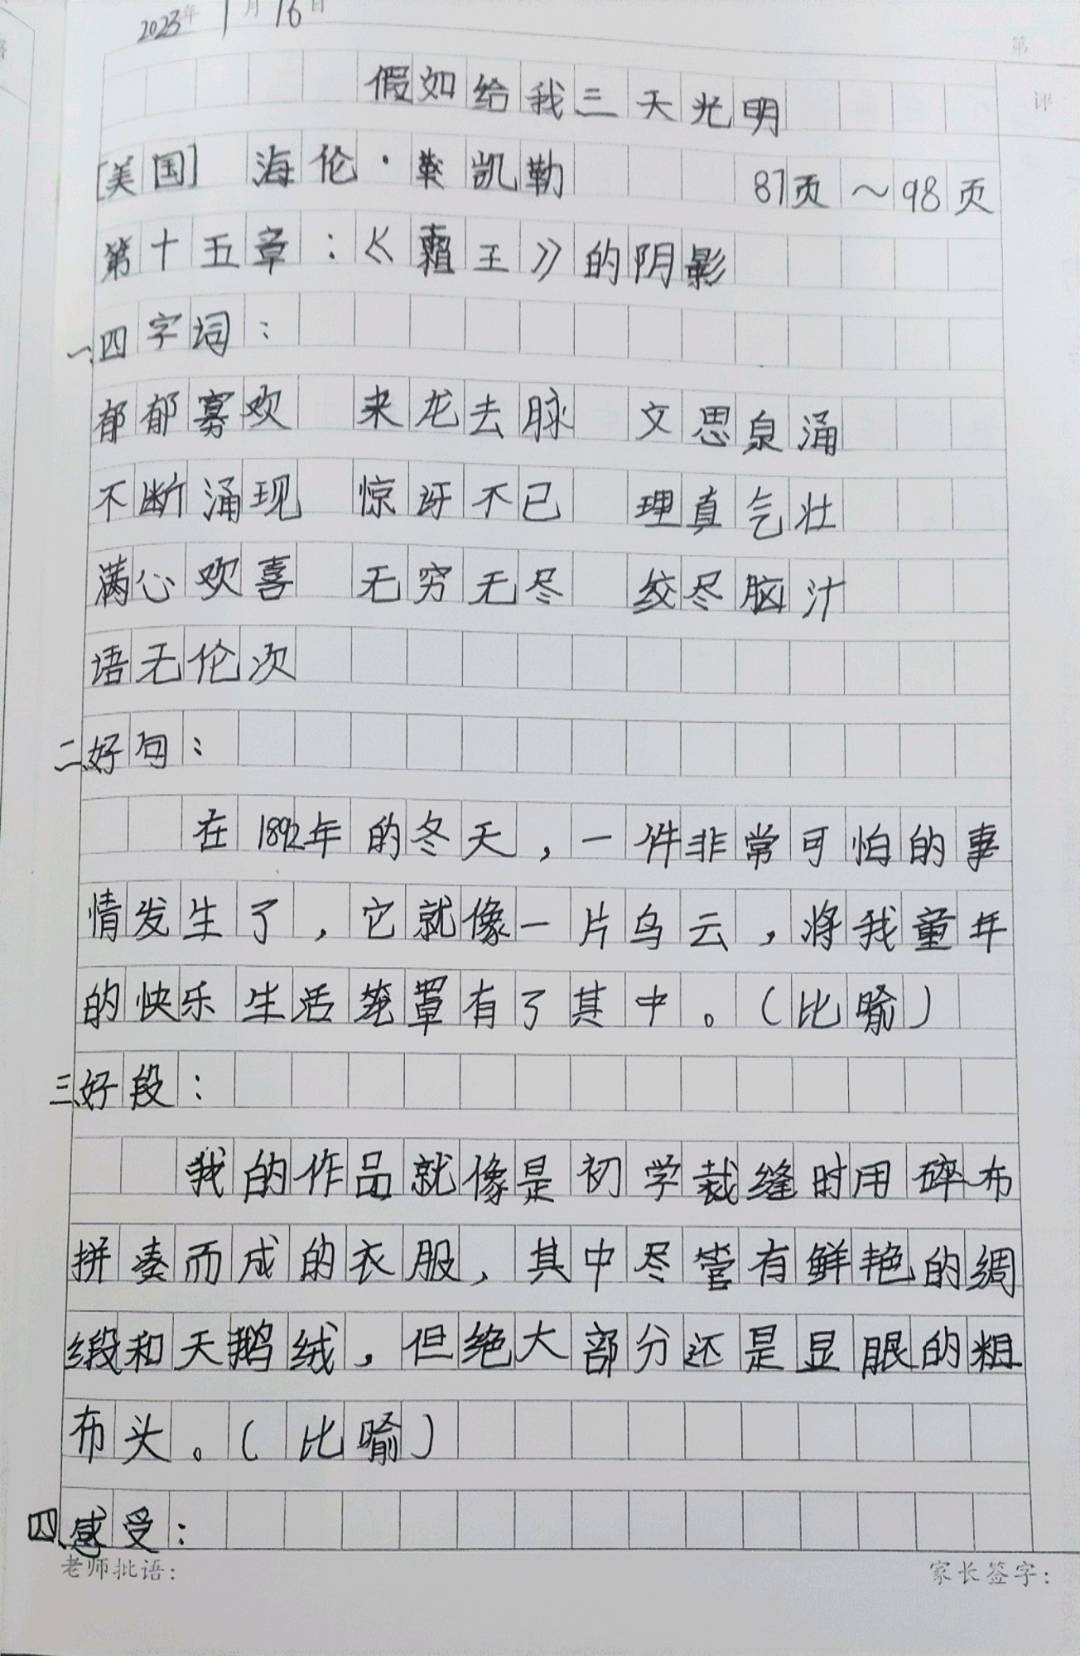 2023年 1月 16日
第
评
假如给我三天光明
[美国] 海伦·凯勒 87页～98页
第十五章：《霜王》的阴影
一、四字词：
郁郁寡欢 来龙去脉 文思泉涌
不断涌现 惊讶不已 理直气壮
满心欢喜 无穷无尽 绞尽脑汁
语无伦次
二、好句：
在1892年的冬天，一件非常可怕的事
情发生了，它就像一片乌云，将我童年
的快乐生活笼罩有了其中。（比喻）
三、好段：
我的作品就像是初学裁缝时用碎布
拼凑而成的衣服，其中尽管有鲜艳的绸
缎和天鹅绒，但绝大部分还是显眼的粗
布头。（比喻）
四、感受：
老师批语： 家长签字：